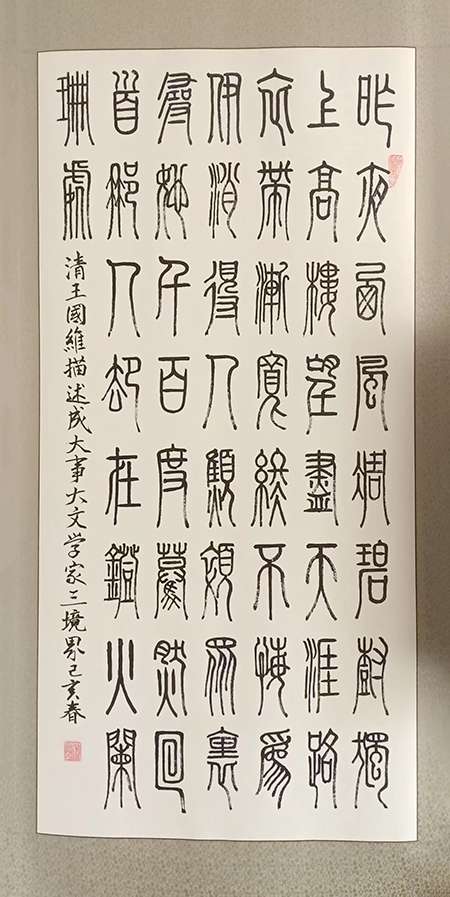 昨夜西風凋碧樹獨
上高樓望盡天涯路
衣帶漸寬終不悔爲
伊消得人顦顇眾裏
尋她千百度驀然回
首那人却在鐙火闌
珊處
清王國維描述成大事大文学家三境界己亥春